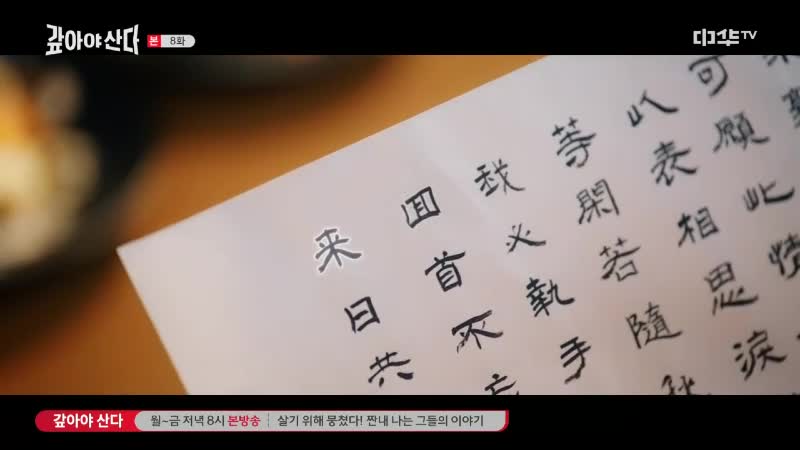 갚아야 산다 본 8화
中华TV
可願此情
以表相思淚
等閑若隨
我必執手
回首不
来日共
갚아야 산다 월~금 저녁 8시 본방송 살기 위해 뭉쳤다! 짠내 나는 그들의 이야기